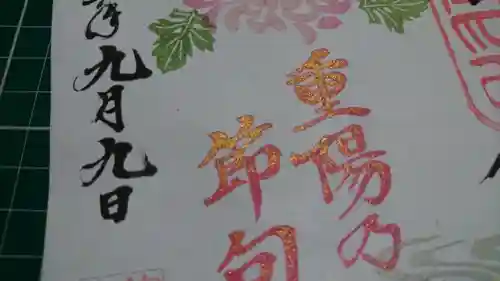 重陽の
節句
九月九日